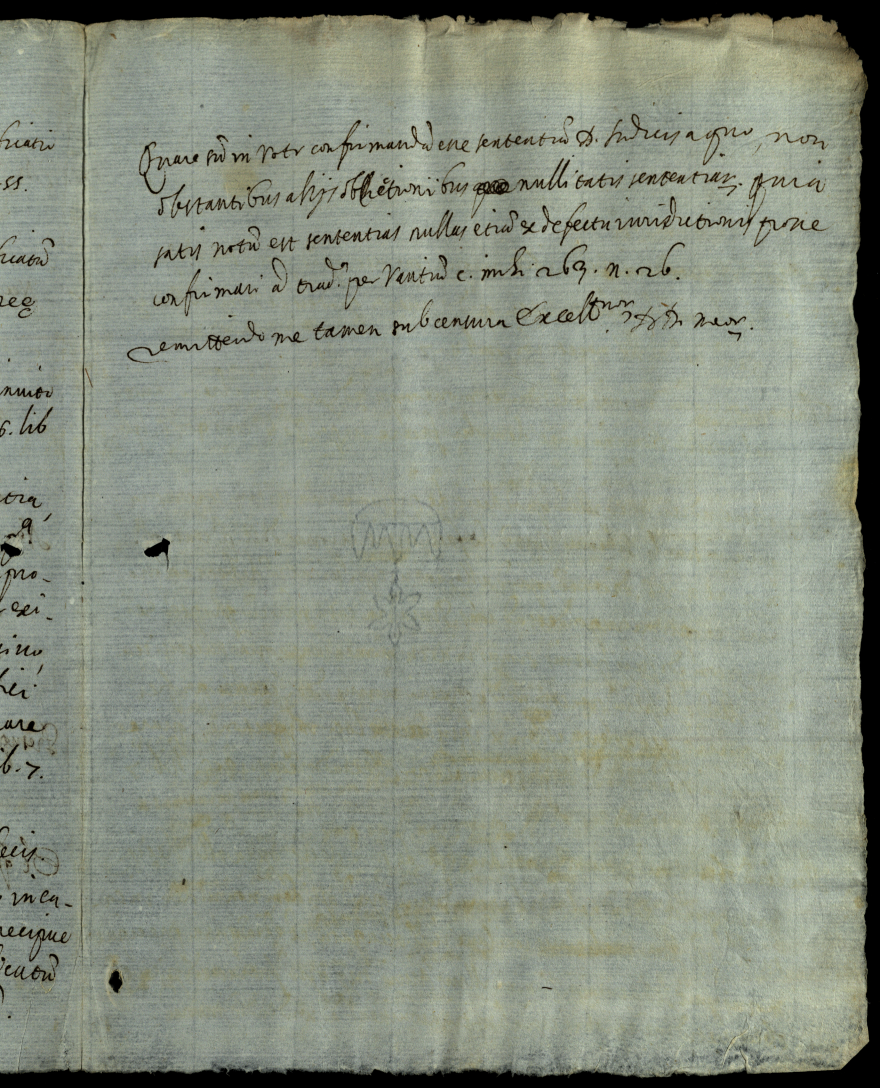 Quare sũ in Voto confirmandã esse sententiã D. Judicis a quo, non
obstantibus alijs obiectionibus nullitatis sententiar. quia
satis notũ est sententias nullas etiã ex defectu iurisdictionis posse
confirmari ad trad. per Vantiũ c. mihi 263. n. 26.
remittendo me tamen sub censura Excell.mor DD. meor.
bicatũ
ss.
ficatũ
invito
6. lib
tria,
pro-
exi-
are
ib. 7.
decis.
in ca-
precipue